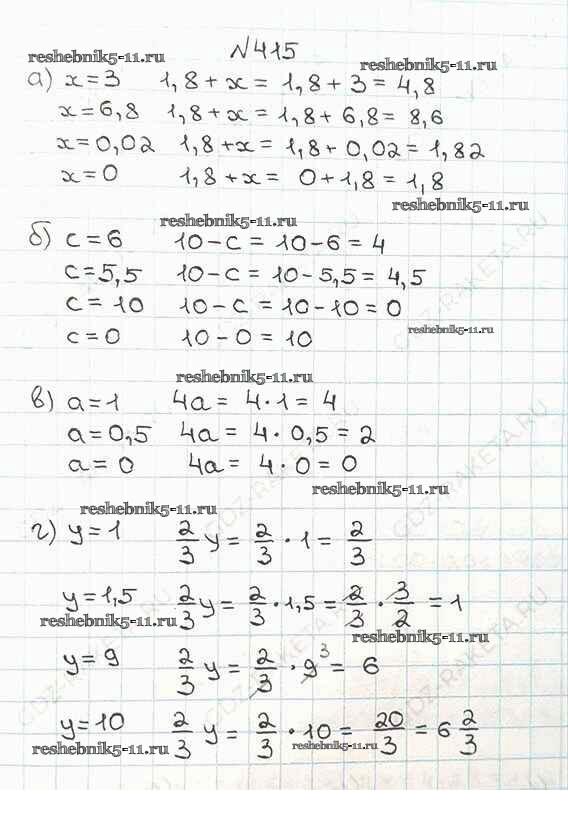 №415
reshebnik5-11.ru
reshebnik5-11.ru
а) x=3 1,8+x = 1,8+3=4,8
x=6,8 1,8+x=1,8+6,8=8,6
x=0,02 1,8+x=1,8+0,02=1,82
x=0 1,8+x= 0+1,8=1,8
reshebnik5-11.ru
reshebnik5-11.ru
б) c=6 10-c=10-6=4
c=5,5 10-c=10-5,5=4,5
c=10 10-c=10-10=0
reshebnik5-11.ru
c=0 10-0=10
reshebnik5-11.ru
в) a=1 4a= 4·1=4
a=0,5 4a= 4·0,5=2
a=0 4a= 4·0=0
reshebnik5-11.ru
reshebnik5-11.ru
г) y=1 2/3 y= 2/3·1= 2/3
y=1,5 2/3 y= 2/3·1,5= 2/3·3/2=1
reshebnik5-11.ru
reshebnik5-11.ru
y=9 2/3 y= 2/3·9³= 6
y=10 2/3 y= 2/3·10= 20/3=6 2/3
reshebnik5-11.ru
reshebnik5-11.ru
GDZ-RAKETA.RU
GDZ-RAKETA.RU
GDZ-RAKETA.RU
GDZ-RAKETA.RU
GDZ-RAKETA.RU